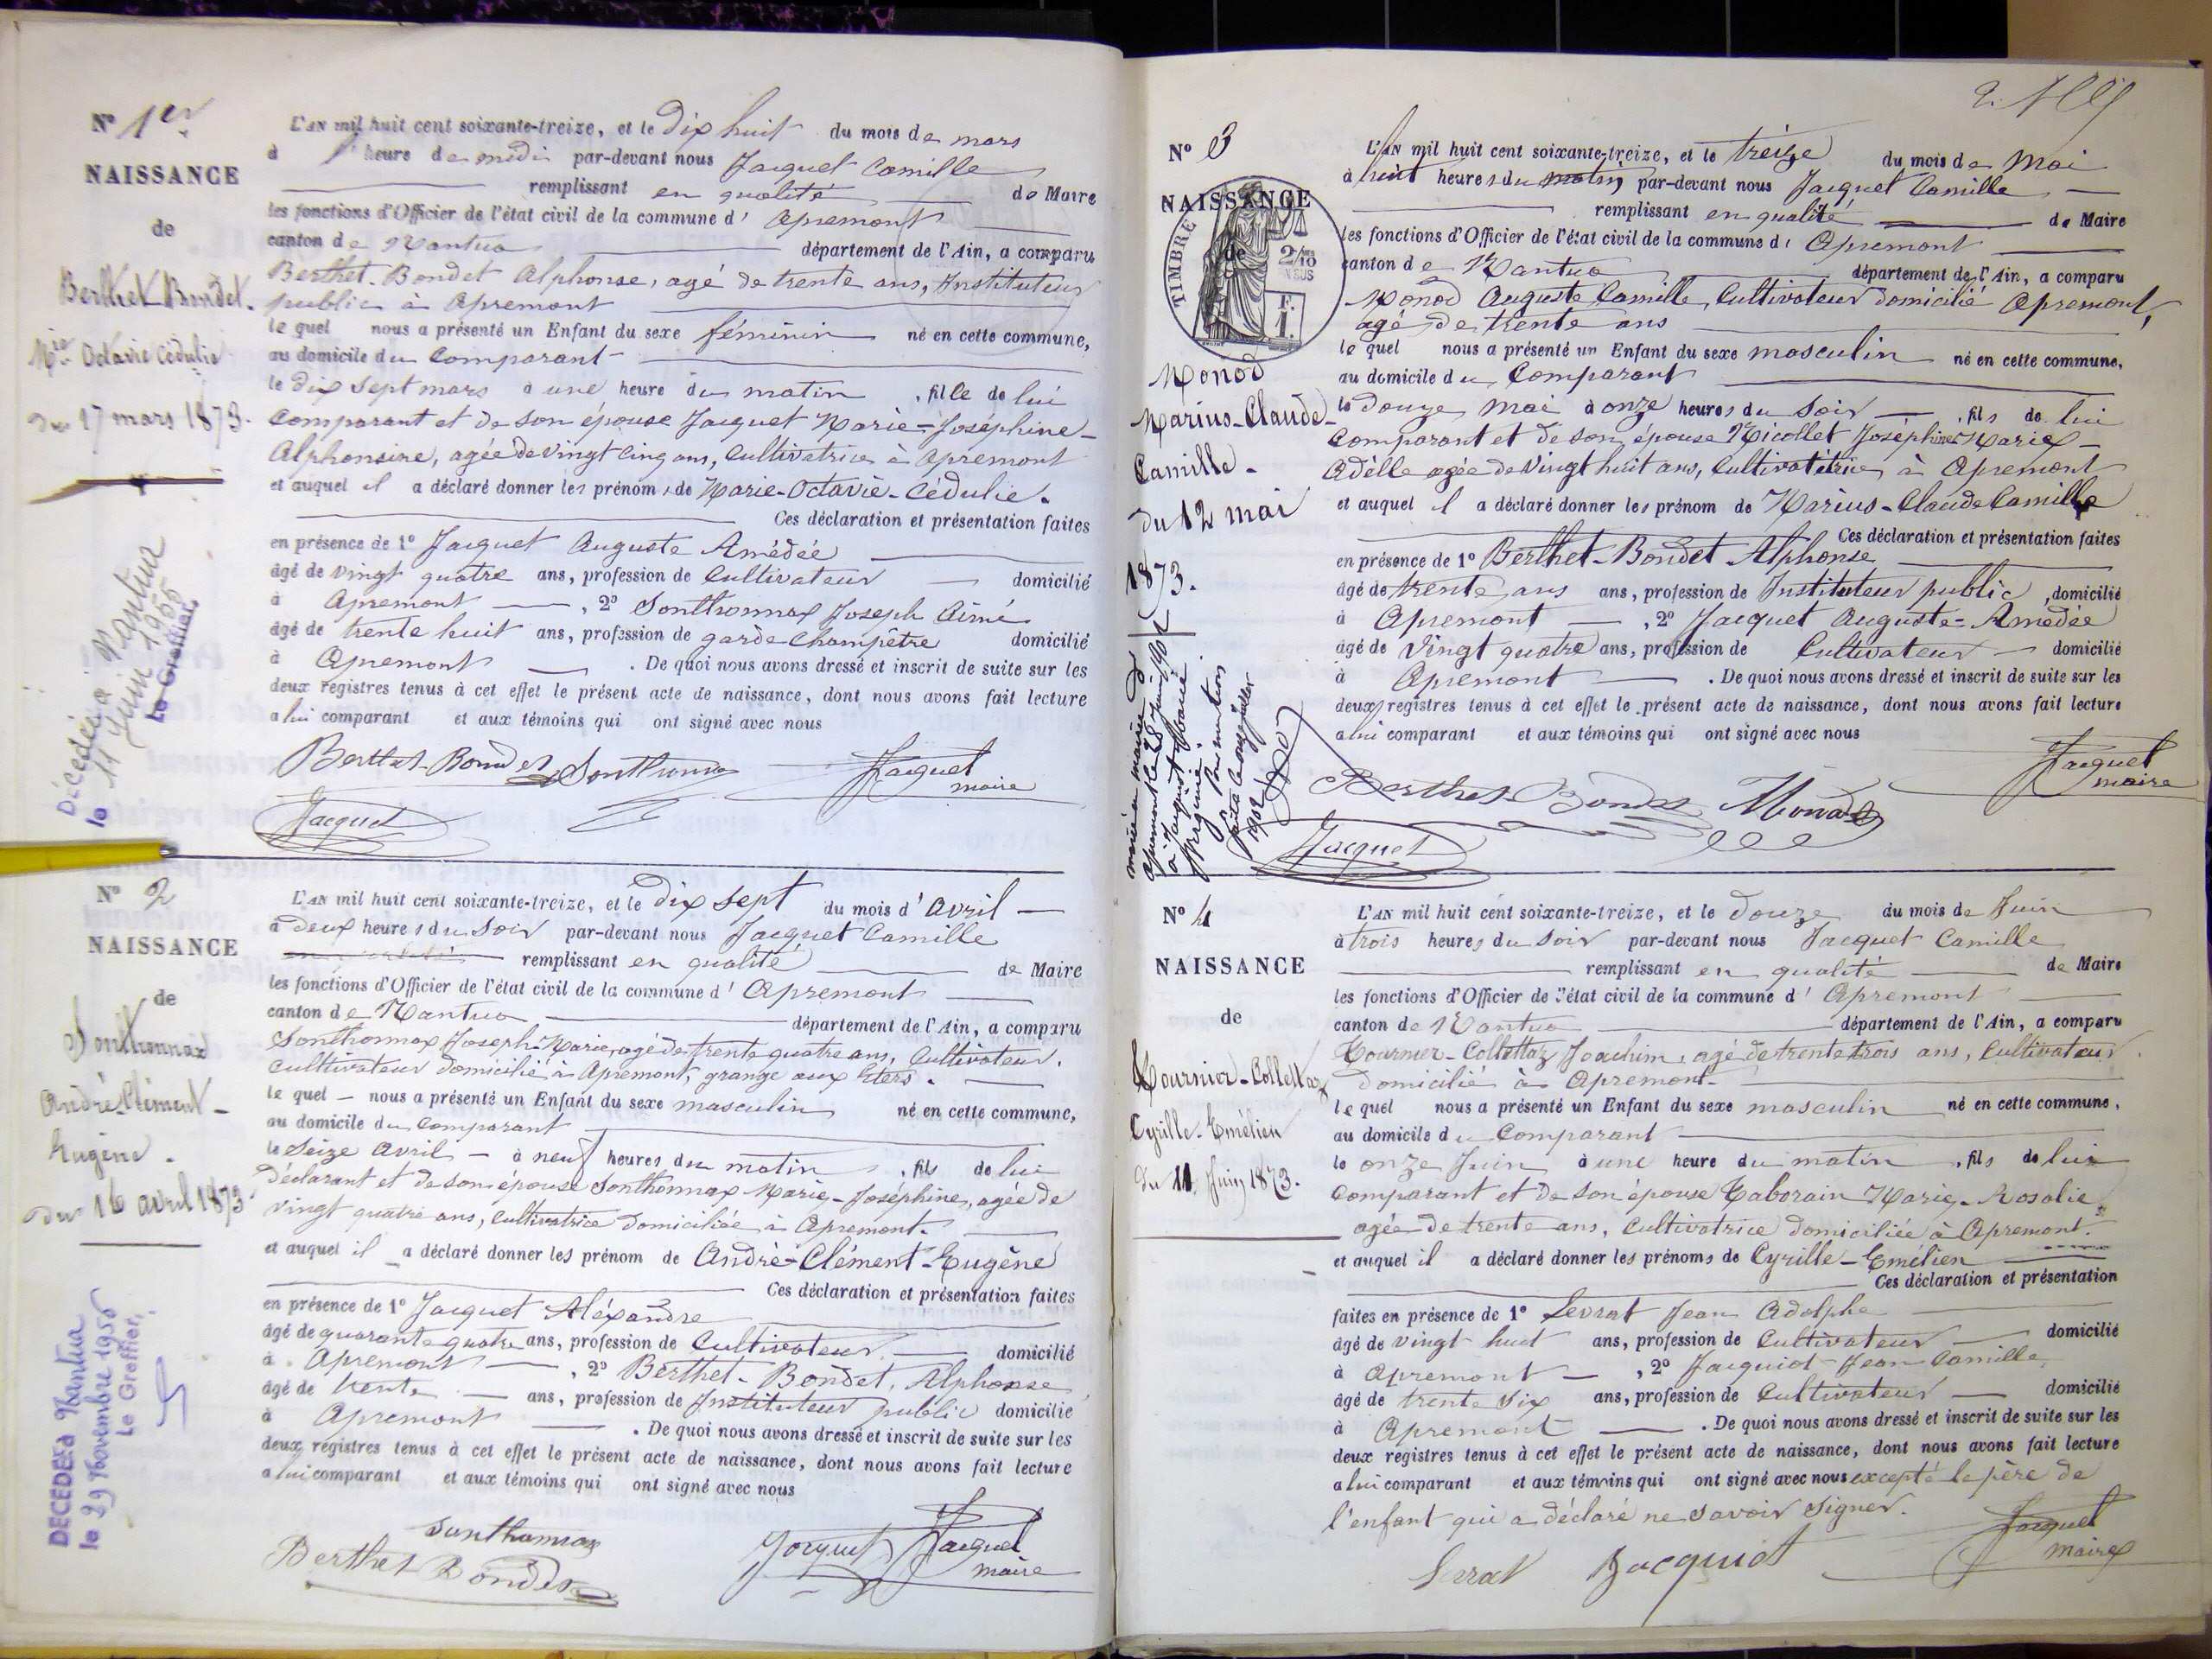 N° 1er
NAISSANCE
de
Berthet-Bondet.
Mie Octavie Cédulie
du 17 mars 1873.
Décédée à Nantua
le 11 Juin 1955
Le Greffier,
L'AN mil huit cent soixante-treize, et le Dix huit du mois de mars
à heure de midi par-devant nous Jacquet Camille
remplissant en qualité de Maire
les fonctions d'Officier de l'état civil de la commune d' Apremont
canton de Nantua département de l'Ain, a comparu
Berthet-Bondet Alphonse, agé de trente ans, Instituteur
public à Apremont
le quel nous a présenté un Enfant du sexe féminin né en cette commune,
au domicile du Comparant
le dix sept mars à une heure du matin, fille de lui
Comparant et de son épouse Jacquet Marie-Joséphine-
Alphonsine, agée de vingt cinq ans, Cultivatrice à Apremont
et auquel il a déclaré donner les prénoms de Marie-Octavie-Cédulie.
Ces déclaration et présentation faites
en présence de 1° Jacquet Auguste Amédée
âgé de vingt quatre ans, profession de Cultivateur domicilié
à Apremont, 2° Sonthonnax Joseph Aimé
âgé de trente huit ans, profession de garde-Champêtre domicilié
à Apremont. De quoi nous avons dressé et inscrit de suite sur les
deux registres tenus à cet effet le présent acte de naissance, dont nous avons fait lecture
a lui comparant et aux témoins qui ont signé avec nous
Berthet-Bondet Sonthonnax Jacquet
maire
Jacquet
N° 2
NAISSANCE
de
Sonthonnax
André-Clément-
Eugène.
du 16 avril 1873
DECEDE à Nantua
le 29 Novembre 1950
Le Greffier,
L'AN mil huit cent soixante-treize, et le Dix sept du mois d' Avril
à deux heures du Soir par-devant nous Jacquet Camille
remplissant en qualité de Maire
les fonctions d'Officier de l'état civil de la commune d' Apremont
canton de Nantua département de l'Ain, a comparu
Sonthonnax Joseph-Marie, agé de trente quatre ans, Cultivateur.
Cultivateur domicilié à Apremont, grange aux
le quel nous a présenté un Enfant du sexe masculin né en cette commune,
au domicile du Comparant
le Seize Avril à neuf heures du matin, fils de lui
déclarant et de son épouse Sonthonnax Marie-Joséphine, agée de
vingt quatre ans, Cultivatrice domiciliée à Apremont.
et auquel il a déclaré donner les prénom de André-Clément-Eugène
Ces déclaration et présentation faites
en présence de 1° Jacquet Aléxandre
âgé de quarante quatre ans, profession de Cultivateur domicilié
à Apremont, 2° Berthet-Bondet, Alphonse
âgé de trente ans, profession de Instituteur public domicilié
à Apremont. De quoi nous avons dressé et inscrit de suite sur les
deux registres tenus à cet effet le présent acte de naissance, dont nous avons fait lecture
a lui comparant et aux témoins qui ont signé avec nous
Sonthonnax
Berthet Bondet Jacquet Jacquet
maire
2.
N° 3
NAISSANCE
de
TIMBRE
2/10
EN SUS
F.
1.
Monod
Marius-Claude-
Camille-
du 12 mai
1873.
marié à
Apremont le 28 juin 1902
à Jacquiot Marie
Virginie
mention
faite le onze juillet
1902
L'AN mil huit cent soixante-treize, et le treize du mois de Mai
à huit heures du matin par-devant nous Jacquet Camille
remplissant en qualité de Maire
les fonctions d'Officier de l'état civil de la commune d' Apremont
canton de Nantua département de l'Ain, a comparu
Monod Auguste Camille, Cultivateur domicilié Apremont,
agé de trente ans
le quel nous a présenté un Enfant du sexe masculin né en cette commune,
au domicile du Comparant
le douze Mai à onze heures du Soir, fils de lui
Comparant et de son épouse Nicollet Joséphine Marie-
Adèlle agée de Vingt huit ans, Cultivatrice à Apremont
et auquel il a déclaré donner les prénom de Marius-Claude Camille
Ces déclaration et présentation faites
en présence de 1° Berthet-Bondet Alphonse
âgé de trente ans ans, profession de Instituteur public, domicilié
à Apremont, 2° Jacquet Auguste-Amédée
âgé de Vingt quatre ans, profession de Cultivateur domicilié
à Apremont. De quoi nous avons dressé et inscrit de suite sur les
deux registres tenus à cet effet le présent acte de naissance, dont nous avons fait lecture
a lui comparant et aux témoins qui ont signé avec nous
Jacquet
maire
Berthet-Bondet Monod
Jacquet
N° 4
NAISSANCE
de
Tournier-Collettaz
Cyrille-Emélien
du 11 Juin 1873.
L'AN mil huit cent soixante-treize, et le Douze du mois de Juin
à trois heures du Soir par-devant nous Jacquet Camille
remplissant en qualité de Maire
les fonctions d'Officier de l'état civil de la commune d' Apremont
canton de Nantua département de l'Ain, a comparu
Tournier-Collettaz Joachim, agé de trente trois ans, Cultivateur
domicilié à Apremont
le quel nous a présenté un Enfant du sexe masculin né en cette commune,
au domicile du Comparant
le onze Juin à une heure du matin, fils de lui
Comparant et de son épouse Taborain Marie-Rosalie
agée de trente ans, Cultivatrice domiciliée à Apremont.
et auquel il a déclaré donner les prénoms de Cyrille-Emélien
Ces déclaration et présentation
faites en présence de 1° Levrat Jean Adolphe
âgé de vingt huit ans, profession de Cultivateur domicilié
à Apremont, 2° Jacquiot Jean Camille
âgé de trente six ans, profession de Cultivateur domicilié
à Apremont. De quoi nous avons dressé et inscrit de suite sur les
deux registres tenus à cet effet le présent acte de naissance, dont nous avons fait lecture
a lui comparant et aux témoins qui ont signé avec nous excepté le père de
l'enfant qui a déclaré ne savoir signer.
Jacquet
maire
Levrat Jacquiot